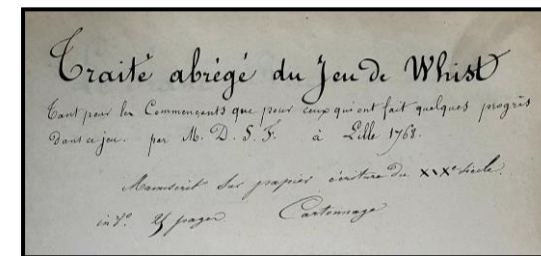 Traité abrégé du Jeu de Whist
Tant pour les Commençants que pour ceux qui ont fait quelques progrès
Dans ce jeu. par M. D. S. F. à Lille 1768.
Manuscrit sur papier écriture du XIXe siècle.
in 4º. pages. Cartonnage